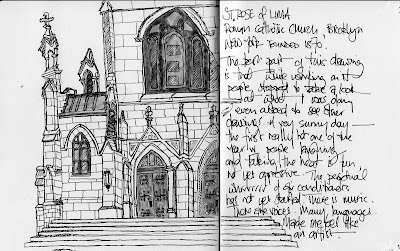 ST. ROSE of LIMA
Roman Catholic Church, Brooklyn
New York. Founded 1870.
The best part of this drawing
is that while working on it
people stopped to take a look
at what I was doing
even asked to see other
drawings. A very sunny day
the first really hot one of the
year. People laughing
and taking the heat is fun
not yet oppressive. The perpetual
of air conditioners
has not yet started. There is music.
There are voices. Many languages
Made me feel like
an artist